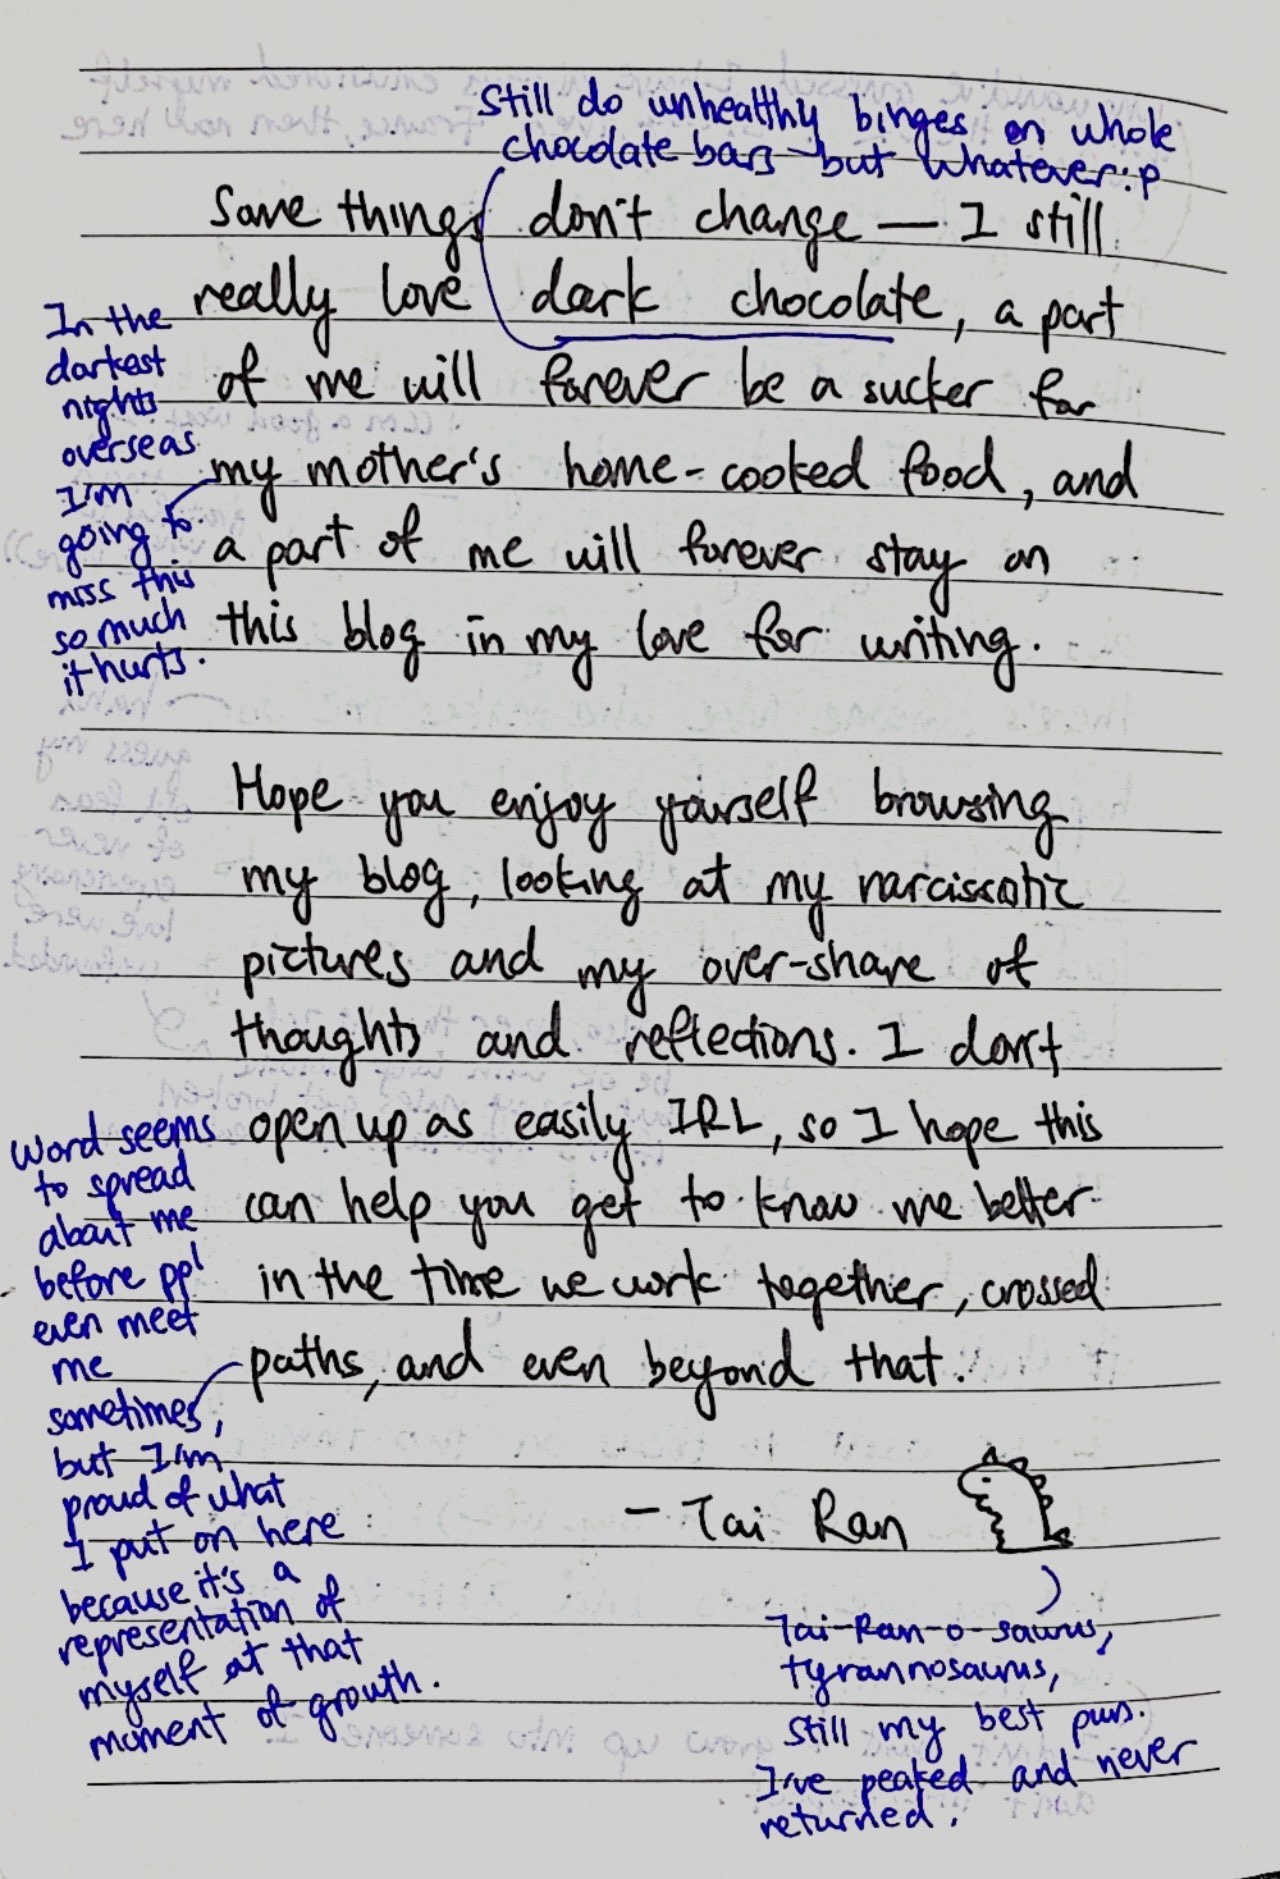 Still do unhealthy binges on whole
chocolate bars but whatever :p
Some things don't change — I still
really love dark chocolate, a part
of me will forever be a sucker for
my mother's home-cooked food, and
a part of me will forever stay on
this blog in my love for writing.
In the
darkest
nights
overseas
I'm
going to
miss this
so much
it hurts.
Hope you enjoy yourself browsing
my blog, looking at my narcissotic
pictures and my over-share of
thoughts and reflections. I don't
open up as easily IRL, so I hope this
can help you get to know me better
in the time we work together, crossed
paths, and even beyond that.
Word seems
to spread
about me
before ppl
even meet
me
sometimes,
but I'm
proud of what
I put on here
because it's a
representation of
myself at that
moment of growth.
- Tai Ran
Tai-Ran-o-saurus,
tyrannosaurus,
still my best pun.
I've peaked and never
returned.